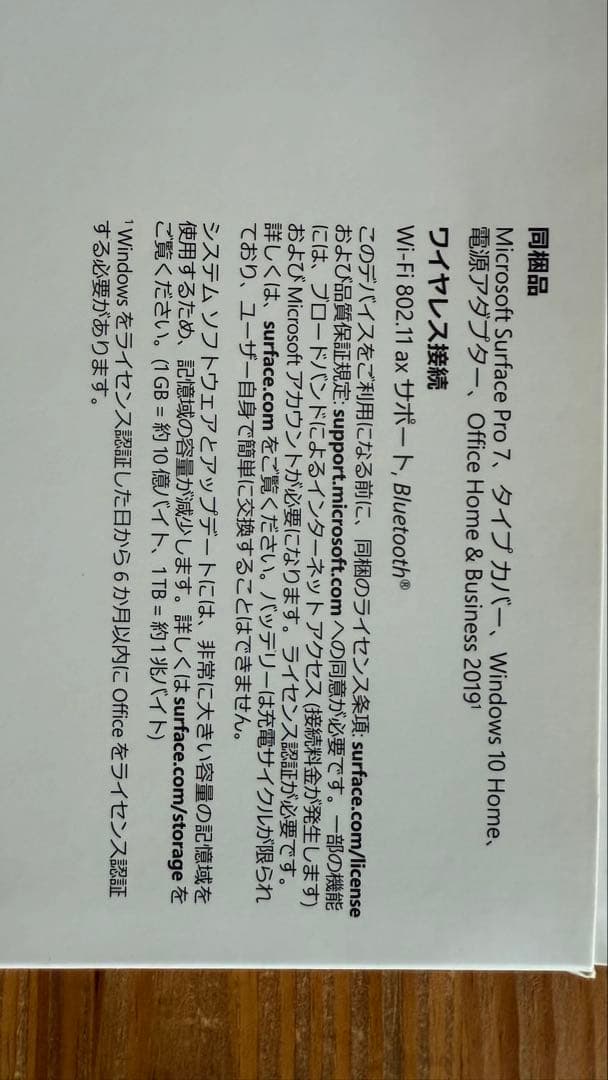 同梱品
Microsoft Surface Pro 7、タイプ カバー、Windows 10 Home、
電源アダプター、Office Home & Business 2019¹
ワイヤレス接続
Wi-Fi 802.11 ax サポート, Bluetooth®
このデバイスをご利用になる前に、同梱のライセンス条項: surface.com/license
および品質保証規定: support.microsoft.com への同意が必要です。一部の機能
には、ブロードバンドによるインターネット アクセス (接続料金が発生します)
および Microsoft アカウントが必要になります。ライセンス認証が必要です。
詳しくは、surface.com をご覧ください。バッテリーは充電サイクルが限られ
ており、ユーザー自身で簡単に交換することはできません。
システム ソフトウェアとアップデートには、非常に大きい容量の記憶域を
使用するため、記憶域の容量が減少します。詳しくは surface.com/storage を
ご覧ください。(1 GB = 約 10 億バイト、1 TB = 約 1 兆バイト)
¹ Windows をライセンス認証した日から 6 か月以内に Office をライセンス認証
する必要があります。